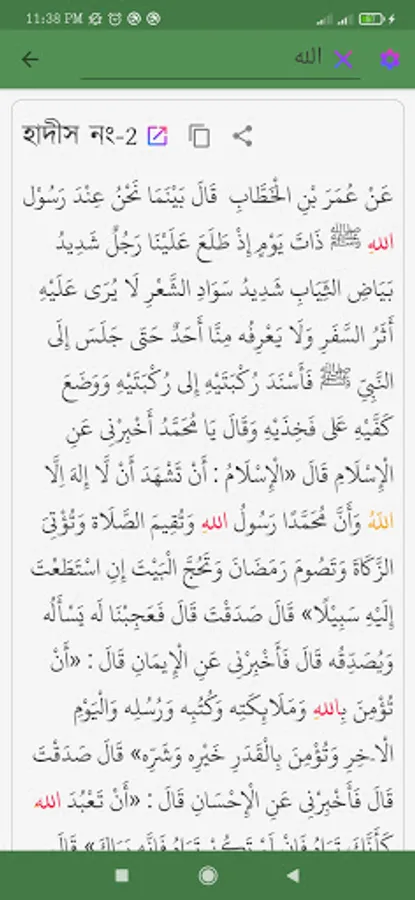 11:38 PM
الله
হাদীস নং-2
عَنْ عُمَرَ بْنِ الْخَطَّابِ قَالَ بَيْنَمَا نَحْنُ عِنْدَ رَسُوْلِ
اللهِ ﷺ ذَاتَ يَوْمٍ إِذْ طَلَعَ عَلَيْنَا رَجُلٌ شَدِيدُ
بَيَاضِ الثِّيَابِ شَدِيدُ سَوَادِ الشَّعْرِ لَا يُرَى عَلَيْهِ
أَثَرُ السَّفَرِ وَلَا يَعْرِفُه مِنَّا أَحَدٌ حَتَّى جَلَسَ إِلَى
النَّبِيِّ ﷺ فَأَسْنَدَ رُكْبَتَيْهِ إِلى رُكْبَتَيْهِ وَوَضَعَ
كَفَّيْهِ عَلى فَخِذَيْهِ وَقَالَ يَا مُحَمَّدُ أَخْبِرْنِى عَنِ
الْإِسْلَامِ قَالَ «الْإِسْلَامُ : أَنْ تَشْهَدَ أَنْ لَّا إِلهَ اِلَّا
اللّهُ وَأَنَّ مُحَمَّدًا رَسُولُ اللهِ وَتُقِيمَ الصَّلَاةَ وَتُؤْتِىَ
الزَّكَاةَ وَتَصُومَ رَمَضَانَ وَتَحُجَّ الْبَيْتَ إِنِ اسْتَطَعْتَ
إِلَيْهِ سَبِيْلًا» قَالَ صَدَقْتَ قَالَ فَعَجِبْنَا لَه يَسْأَلُه
وَيُصَدِّقُه قَالَ فَأَخْبِرْنِى عَنِ الْإِيمَانِ قَالَ : «أَنْ
تُؤْمِنَ بِاللهِ وَمَلَائِكَتِه وَكُتُبِه وَرُسُلِه وَالْيَوْمِ
الْاخِرِ وَتُؤْمِنَ بِالْقَدَرِ خَيْرِه وَشَرِّه» قَالَ صَدَقْتَ
قَالَ فَأَخْبِرْنِى عَنِ الْإِحْسَانِ قَالَ : «أَنْ تَعْبُدَ الله
كَأَنَّكَ تَرَاهُ فَإِنْ لَمْ تَكُنْ تَرَاهُ فَإِنَّه يَرَاكَ» قَالَ